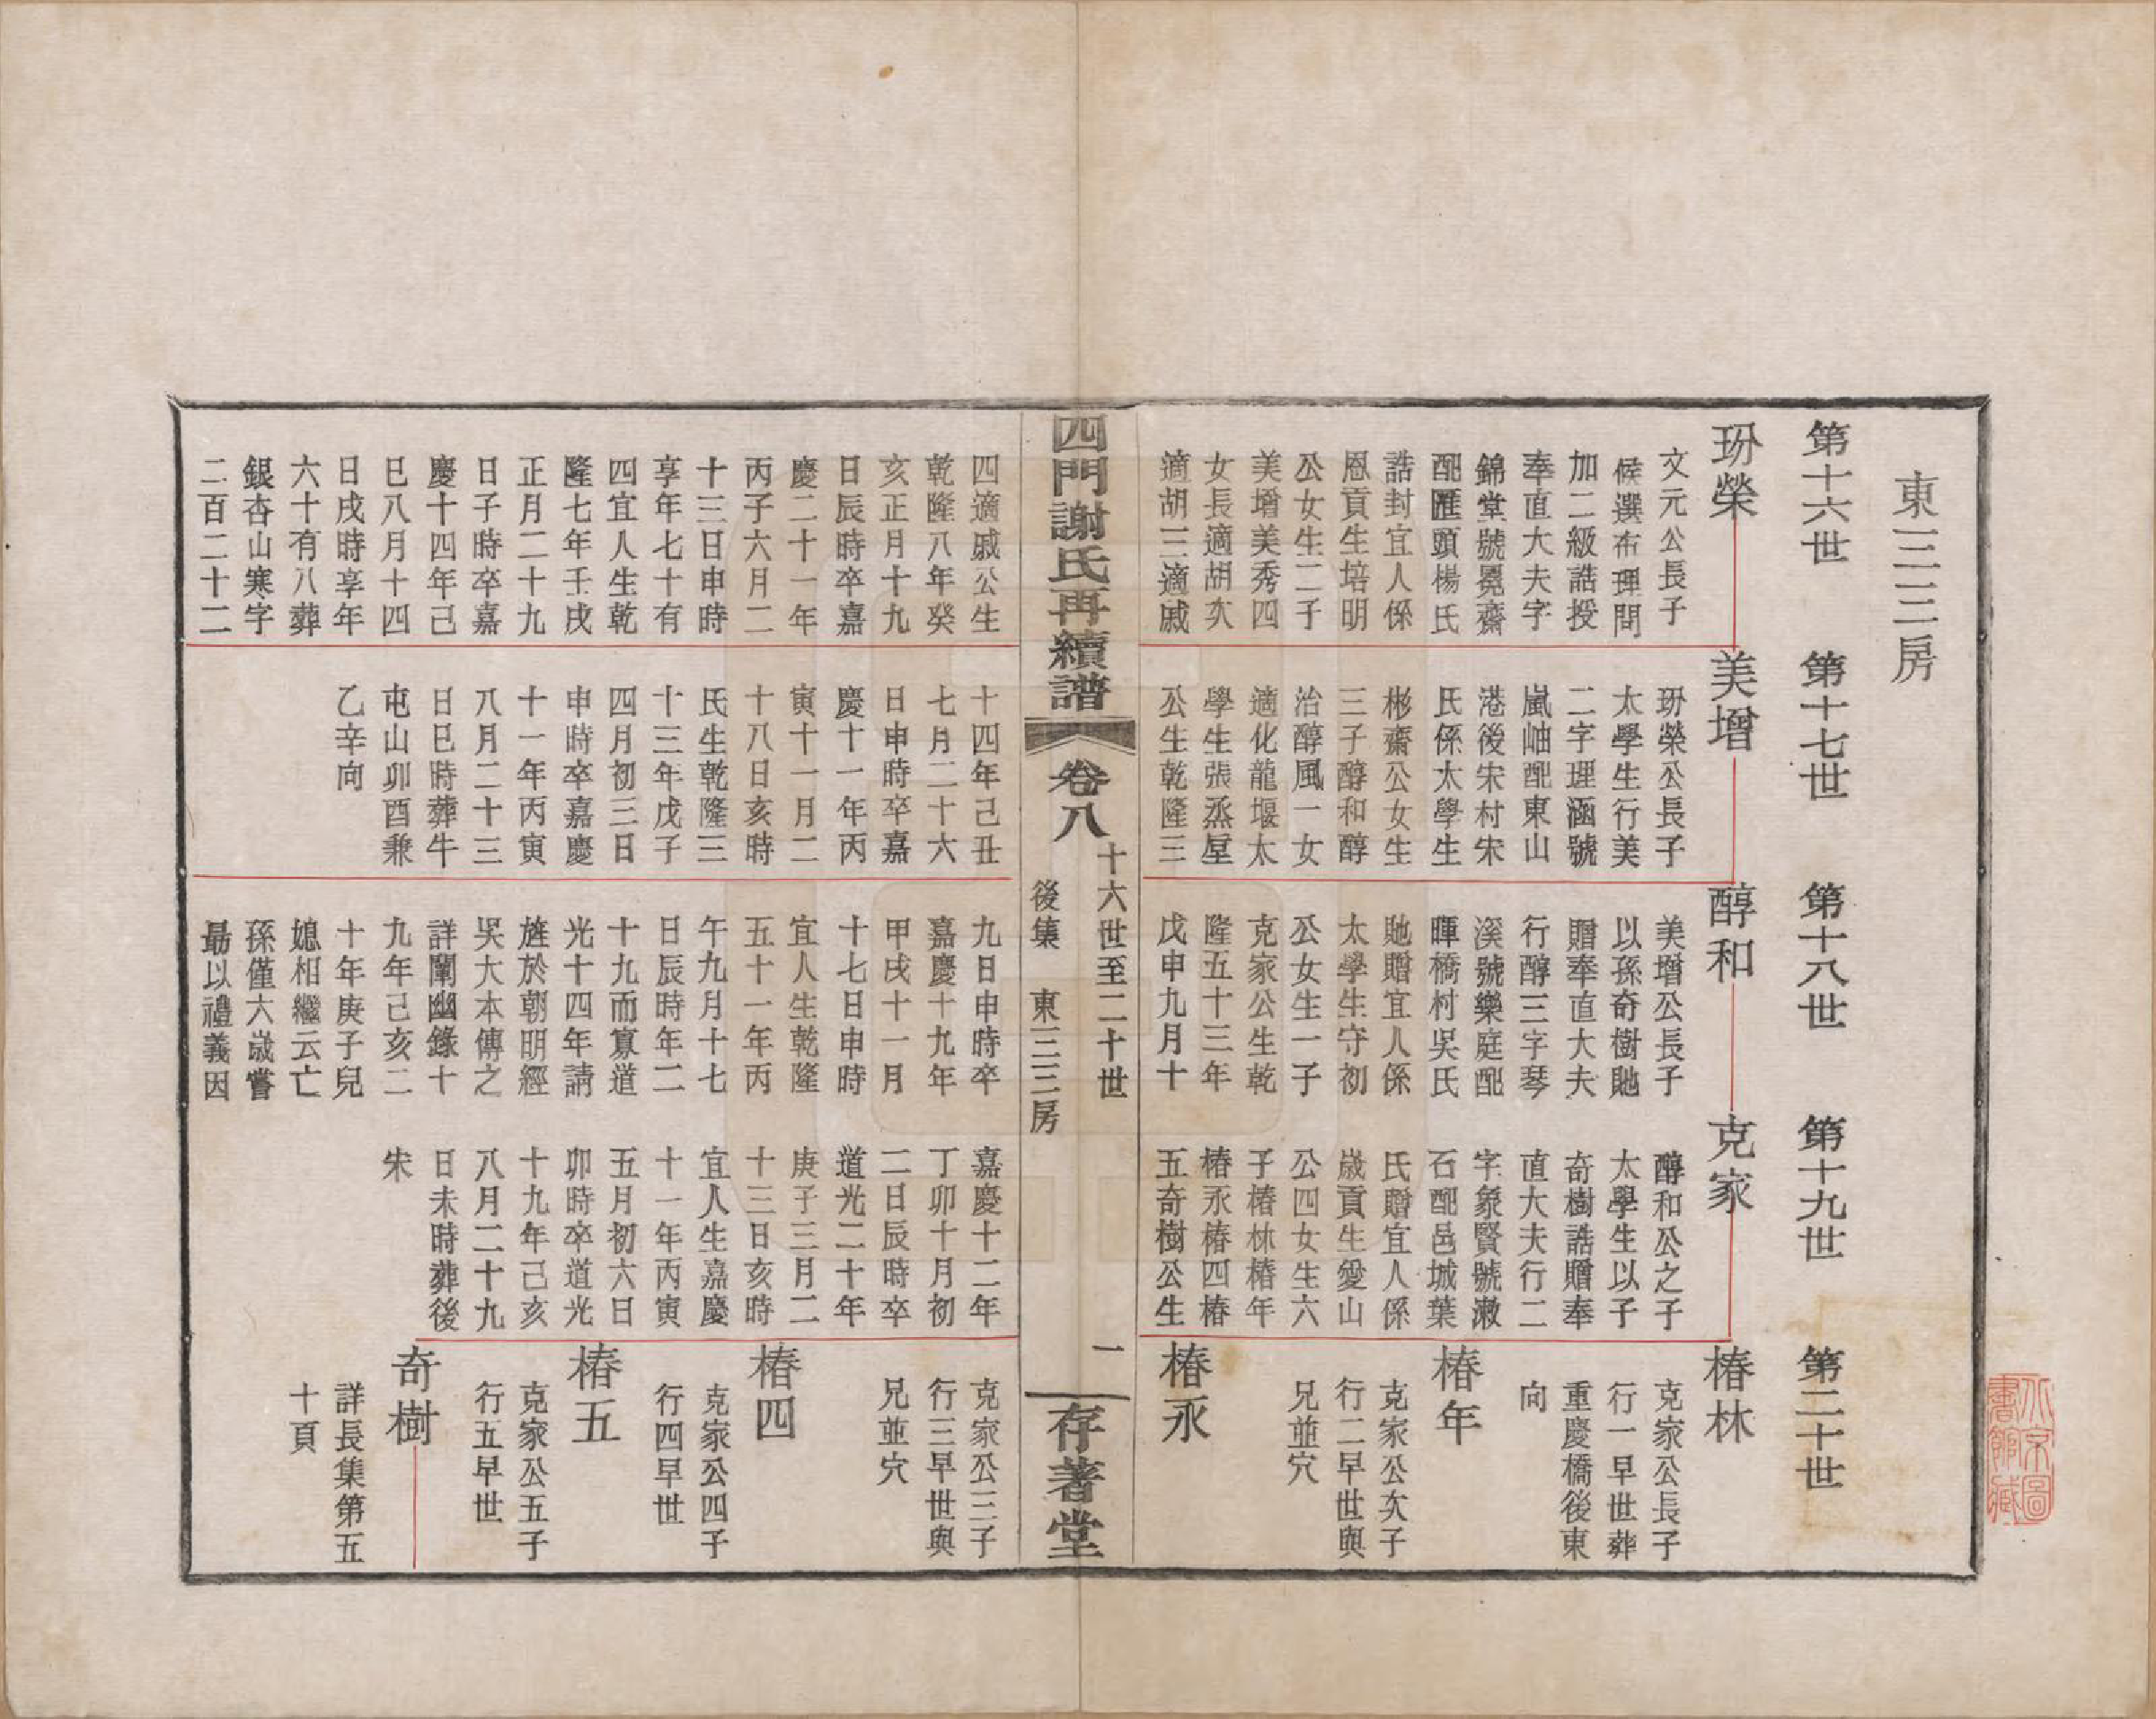 東三三房
第十六世
第十七世
第十八世
第十九世
第二十世
玢榮
文元公長子
候選布理問
加二級誥授
奉直大夫字
錦堂號冕齋
配匯頭楊氏
誥封宜人係
恩貢生培明
公女生二子
美增美秀四
女長適胡次
適胡三適戚
四適戚公生
乾隆八年癸
亥正月十九
日辰時卒嘉
慶二十一年
丙子六月二
十三日申時
享年七十有
四宜人生乾
隆七年壬戌
正月二十九
日子時卒嘉
慶十四年己
巳八月十四
日戌時享年
六十有八葬
銀杏山寒字
二百二十二
美增
玢榮公長子
太學生行美
二字理涵號
嵐岫配東山
港後宋村宋
氏係太學生
彬齋公女生
三子醇和醇
治醇風一女
適化龍堰太
學生張烝垕
公生乾隆三
十四年己丑
七月二十六
日申時卒嘉
慶十一年丙
寅十一月二
十八日亥時
氏生乾隆三
十三年戊子
四月初三日
申時卒嘉慶
十一年丙寅
八月二十三
日巳時葬牛
屯山卯酉兼
乙辛向
醇和
美增公長子
以孫奇樹貤
贈奉直大夫
行醇三字琴
溪號樂庭配
暉橋村吳氏
貤贈宜人係
太學生守初
公女生一子
克家公生乾
隆五十三年
戊申九月十
九日申時卒
嘉慶十九年
甲戌十一月
十七日申時
宜人生乾隆
五十一年丙
午九月十七
日辰時年二
十九而寡道
光十四年請
旌於朝明經
吳大本傳之
詳闡幽錄十
九年己亥二
十年庚子兒
媳相繼云亡
孫僅六歲嘗
最以禮義因
克家
醇和公之子
太學生以子
奇樹誥贈奉
直大夫行二
字象賢號漱
石配邑城葉
氏贈宜人係
歲貢生愛山
公四女生六
子椿林椿年
椿永椿四椿
五奇樹公生
嘉慶十二年
丁卯十月初
二日辰時卒
道光二十年
庚子三月二
十三日亥時
宜人生嘉慶
十一年丙寅
五月初六日
卯時卒道光
十九年己亥
八月二十九
日未時葬後
朱
椿林
克家公長子
行一早世葬
重慶橋後東
向
椿年
克家公次子
行二早世與
兄並穴
椿永
克家公三子
行三早世與
兄並穴
椿四
克家公四子
行四早世
椿五
克家公五子
行五早世
奇樹
詳長集第五
十頁
四門謝氏再續譜
卷八
十六世至二十世
後集 東三三房
一
存著堂
北京圖
書館藏